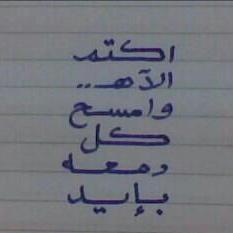 اكتم
الآهـ..
وامسح
كل
دمعه
بإيد